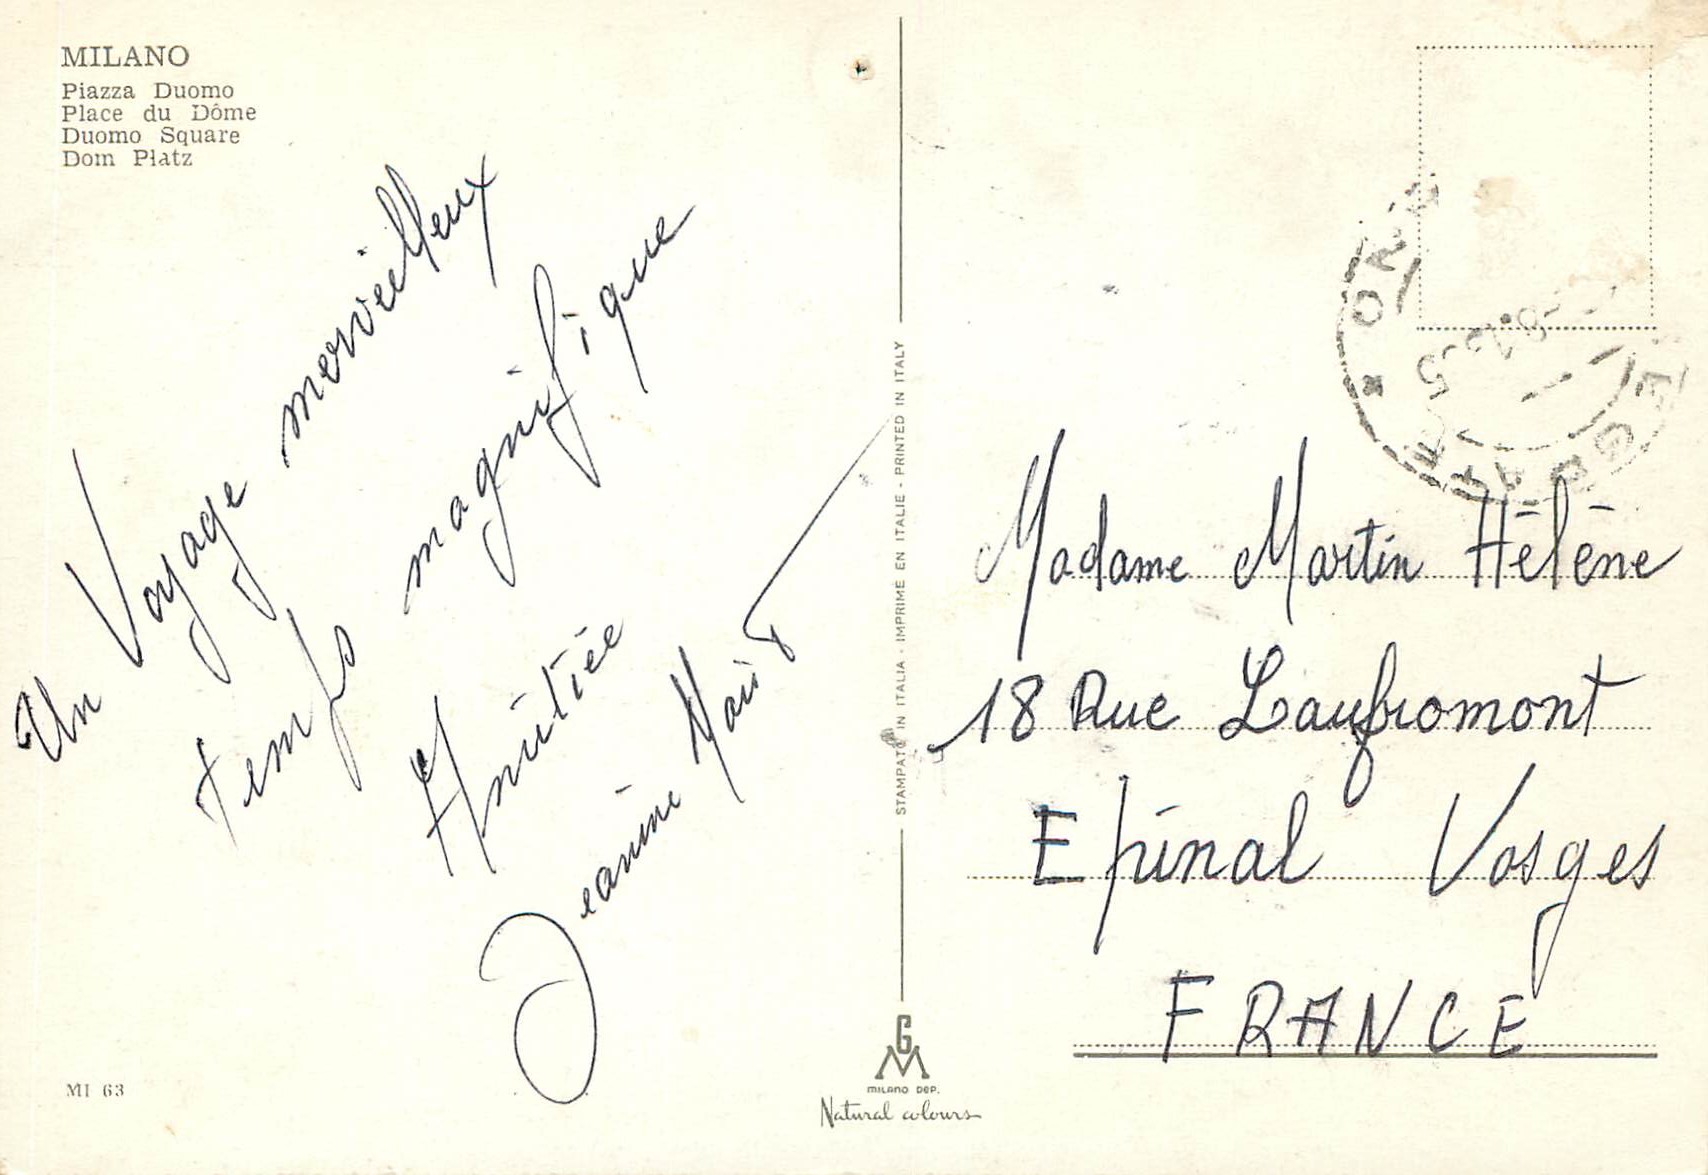 MILANO
Piazza Duomo
Place du Dôme
Duomo Square
Dom Platz
Un Voyage merveilleux
temps magnifique
Amitiée
Jeanine
STAMPATO IN ITALIA - IMPRIMÉ EN ITALIE - PRINTED IN ITALY
Madame Martin Hélène
18 Rue Laufromont
Epinal Vosges
FRANCE
MI 63
GM
MILANO DEP.
Natural colours